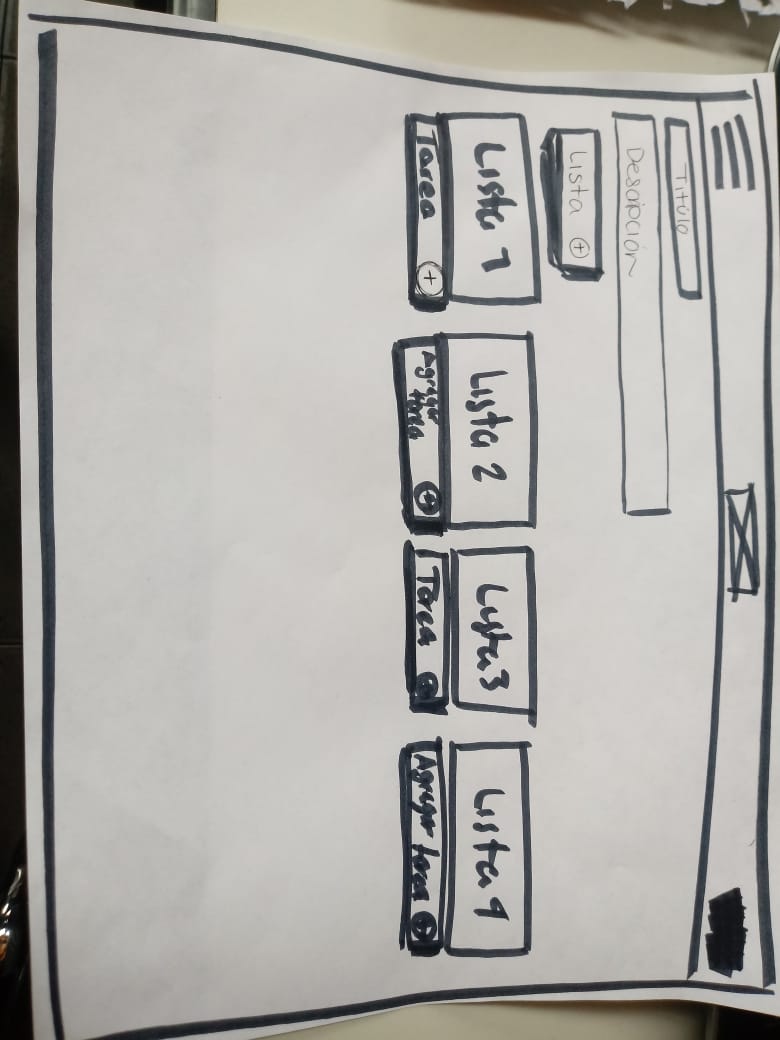 Título
Descripción
Lista +
Lista 1
Tarea +
Lista 2
Agregar
tarea +
Lista 3
Tarea +
Lista 4
Agregar tarea +